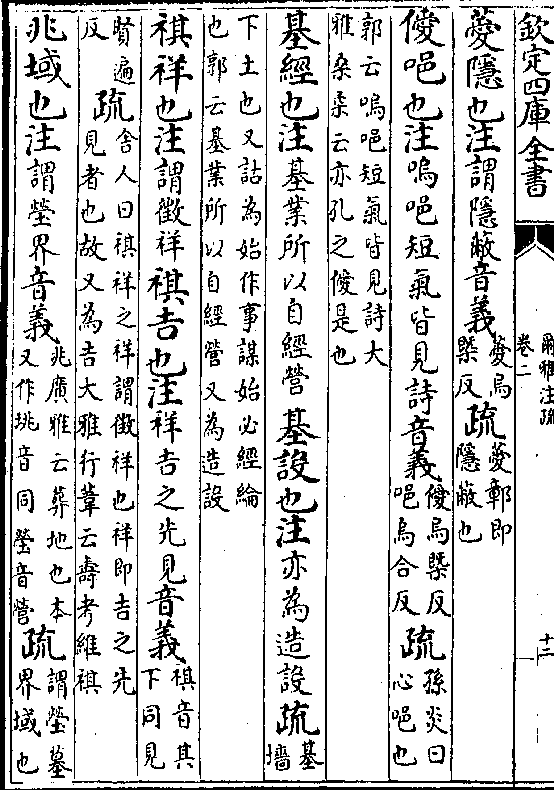 欽定四庫全書
爾雅注疏
卷二
十二
薆隱也注謂隱蔽音義薆烏槩反疏薆鄣即隱蔽也
僾唈也注嗚唈短氣皆見詩音義僾烏槩反唈烏合反疏孫炎曰心唈也
郭云嗚唈短氣皆見詩大雅桑柔云亦孔之僾是也
基經也注基業所以自經營基設也注亦為造設疏基墻
下土也又詁為始作事謀始必經綸也郭云基業所以自經營又為造設
祺祥也注謂徵祥祺吉也注祥吉之先見音義祺音其下同見
賢遍反疏舍人曰祺祥之祥謂徵祥也祥即吉之先見者也故又為吉大雅行葦云壽考維祺
兆域也注謂塋界音義兆廣雅云葬地也本又作垗音同塋音營疏謂塋墓界域也